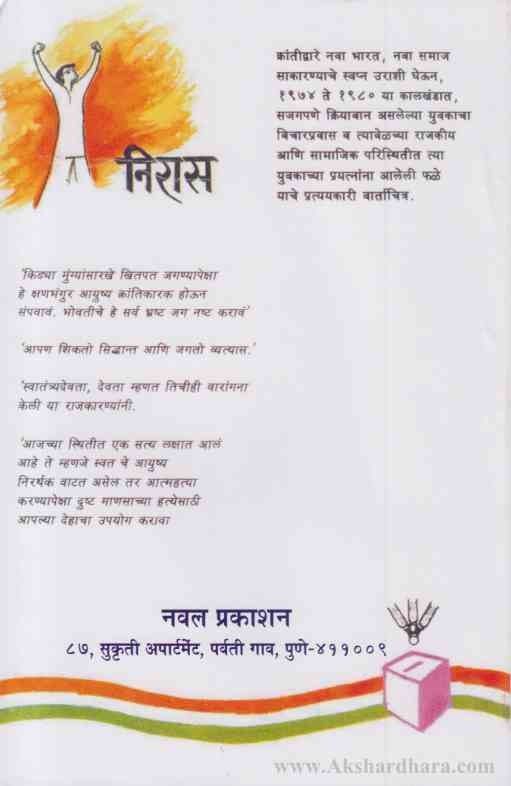 क्रांतीद्वारे नवा भारत, नवा समाज
साकारण्याचे स्वप्न उराशी घेऊन,
१९७४ ते १९८० या कालखंडात,
सजगपणे क्रियावान असलेल्या युवकाचा
विचारप्रवास व त्यावेळच्या राजकीय
आणि सामाजिक परिस्थितीत त्या
युवकाच्या प्रयत्नांना आलेली फळे
याचे प्रत्ययकारी वार्ताचित्र.
निरास
'किड्या मुंग्यांसारखे खितपत जगण्यापेक्षा
हे क्षणभंगुर आयुष्य क्रांतिकारक होऊन
संपवावं. भोवतीचे हे सर्व भ्रष्ट जग नष्ट करावं'
'आपण शिकतो सिद्धान्त आणि जगतो व्यत्यास.'
'स्वातंत्र्यदेवता, देवता म्हणत तिचीही वारांगना
केली या राजकारण्यांनी.
'आजच्या स्थितीत एक सत्य लक्षात आलं
आहे ते म्हणजे स्वत चे आयुष्य
निरर्थक वाटत असेल तर आत्महत्या
करण्यापेक्षा दुष्ट माणसाच्या हत्येसाठी
आपल्या देहाचा उपयोग करावा
नवल प्रकाशन
८७, सुकृती अपार्टमेंट, पर्वती गाव, पुणे-४११००९
www.Akshardhara.com